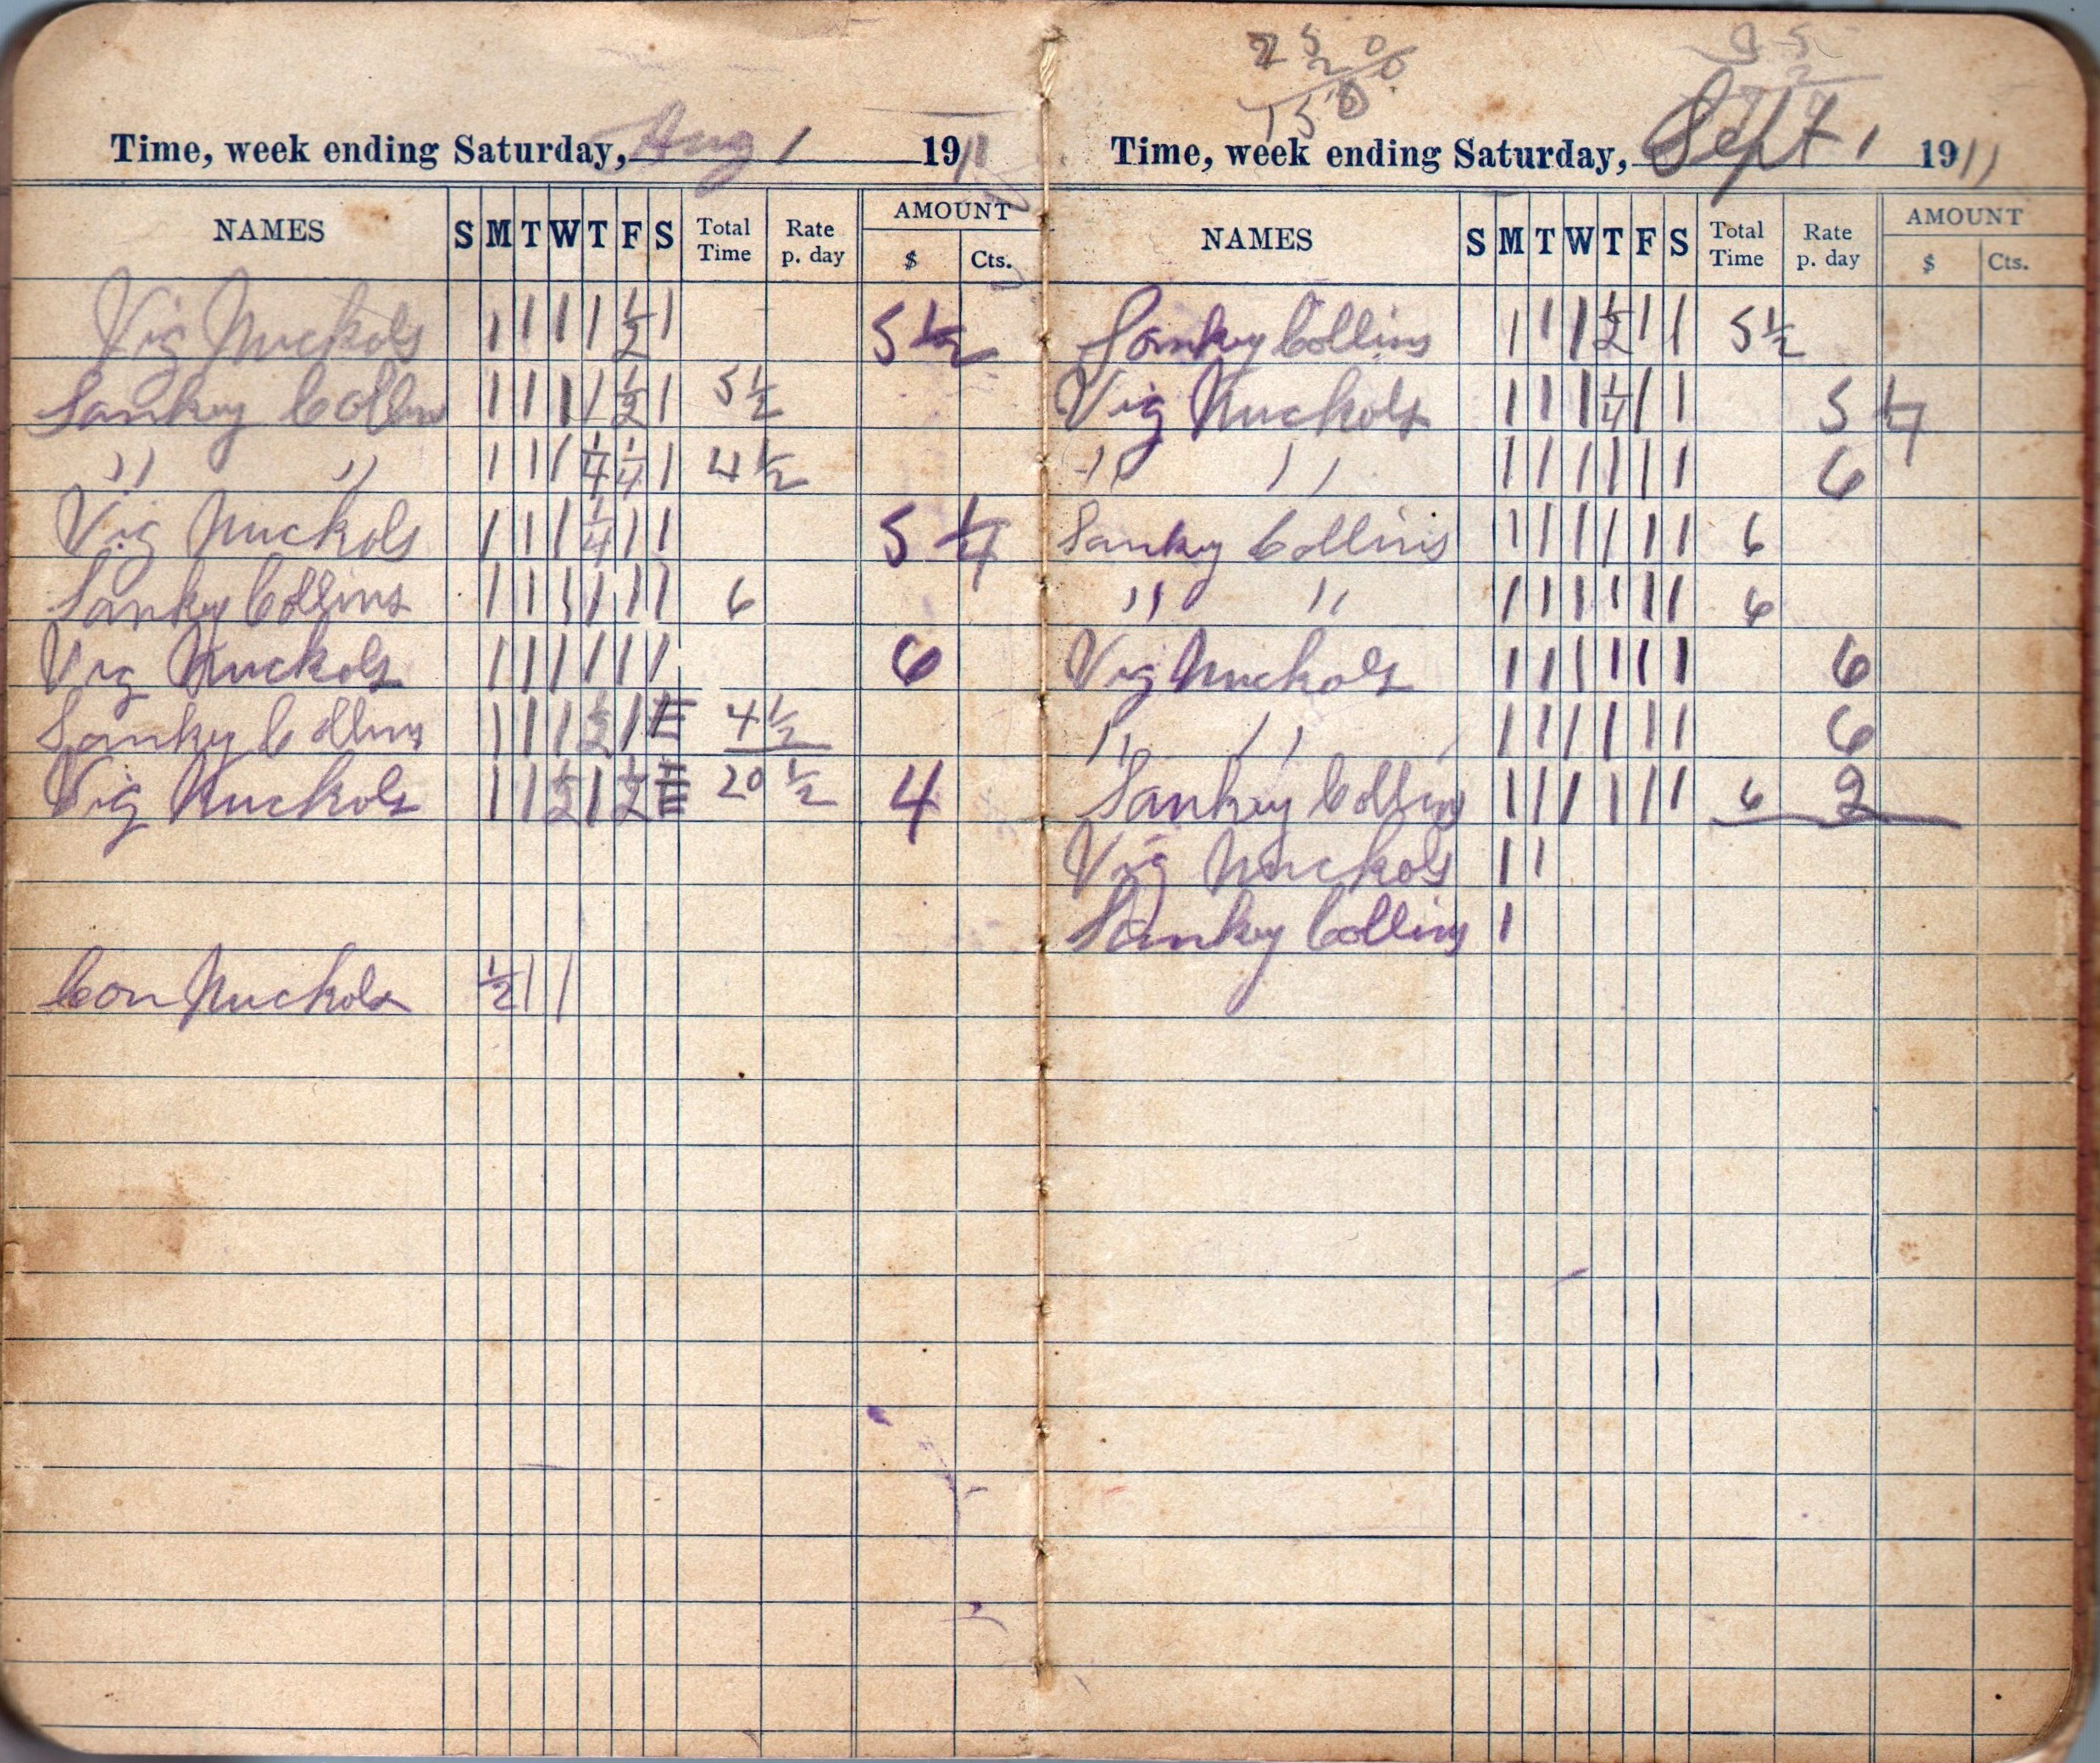 Time, week ending Saturday, Aug 1 1911
NAMES S M T W T F S Total Time Rate p. day AMOUNT $ Cts.
Vig Nuckols 1 1 1 1 1/2 1 5 1/2
Sankey Collins 1 1 1 1 1/2 1 5 1/2
" " 1 1 1 1/4 1/4 1 4 1/2
Vig Nuckols 1 1 1 1/4 1 1 5 1/4
Sankey Collins 1 1 1 1 1 1 6
Vig Nuckols 1 1 1 1 1 1 6
Sankey Collins 1 1 1 1/2 1 4 1/2
Vig Nuckols 1 1 1/2 1 1/2 20 1/2 4
Con Nuckols 1/2 1 1
2 5 0
150
Time, week ending Saturday, Sept 1 1911
NAMES S M T W T F S Total Time Rate p. day AMOUNT $ Cts.
Sankey Collins 1 1 1 1/2 1 1 5 1/2
Vig Nuckols 1 1 1 1/4 1 1 5 1/4
" " 1 1 1 1 1 1 6
Sankey Collins 1 1 1 1 1 1 6
" " 1 1 1 1 1 1 6
Vig Nuckols 1 1 1 1 1 1 6
" " 1 1 1 1 1 1 6
Sankey Collins 1 1 1 1 1 1 6 2
Vig Nuckols 1 1
Sankey Collins 1